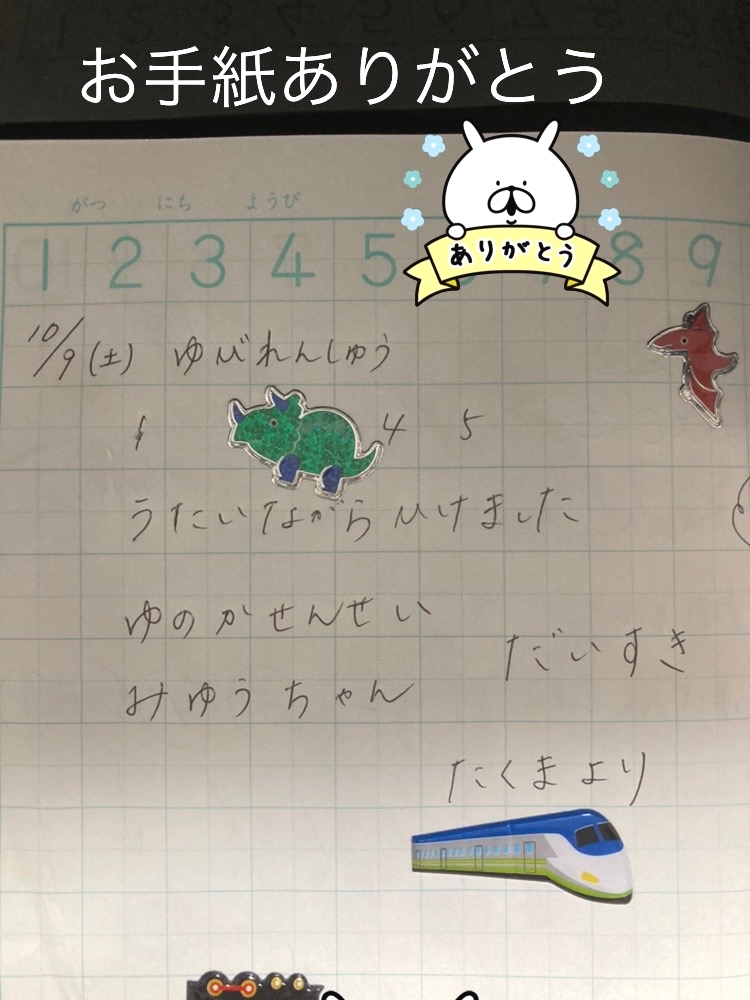 お手紙ありがとう
がつ にち ようび
ありがとう
1 2 3 4 5 8 9
10/9(土) ゆびれんしゅう
1 4 5
うたいながらひけました
ゆのかせんせい
だいすき
みゆうちゃん
たくまより